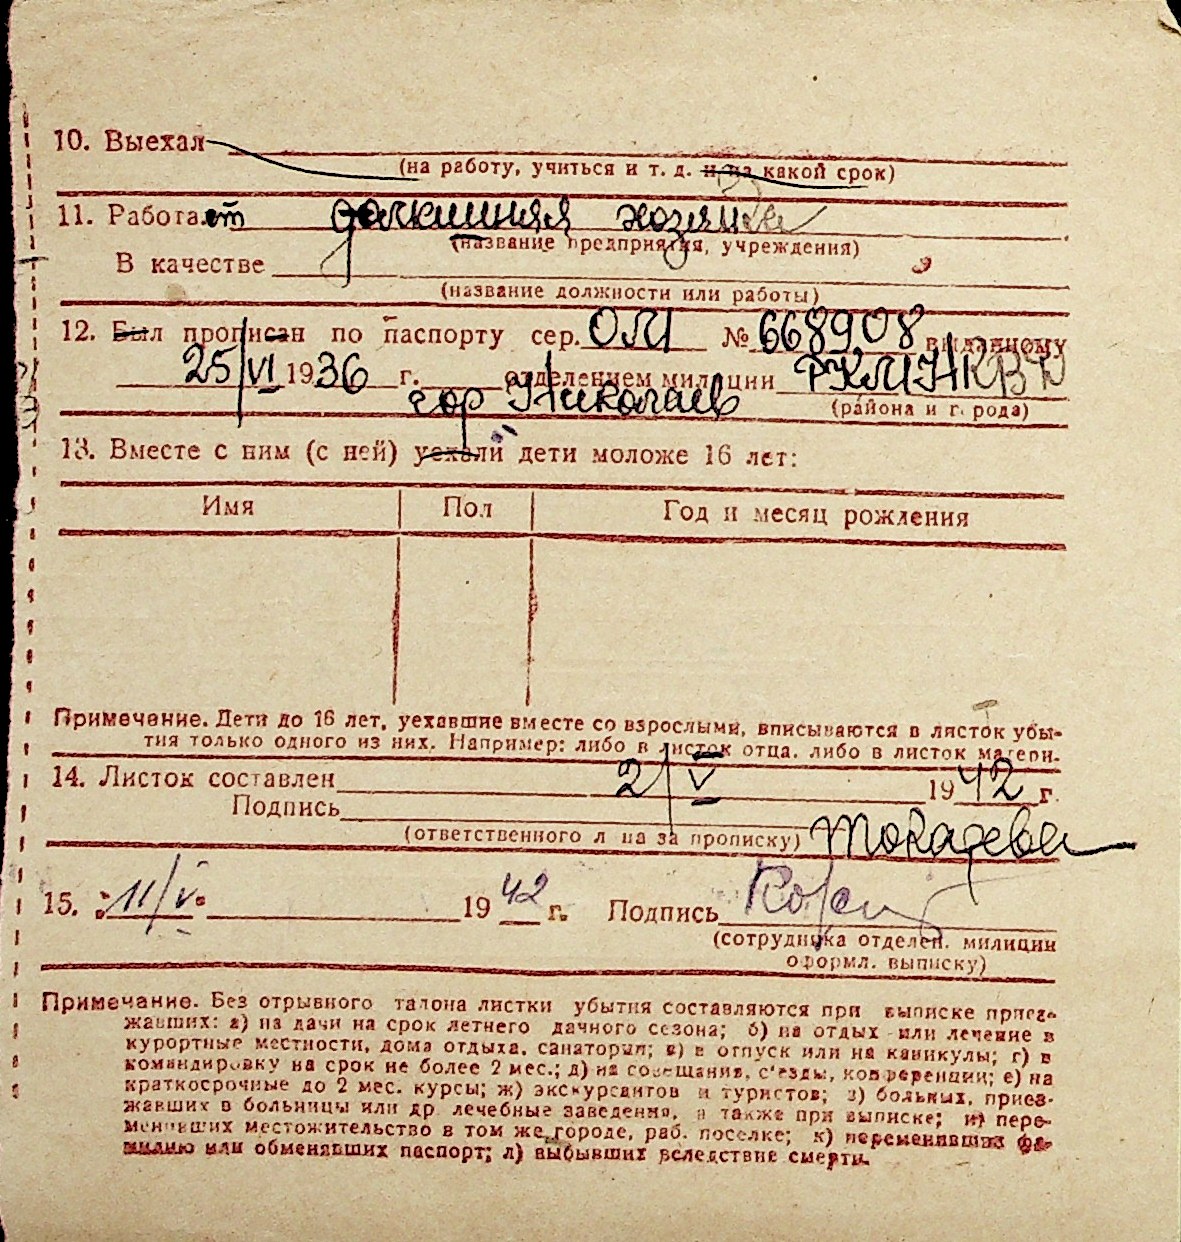 10. Выехал
(на работу, учиться и т. д. и на какой срок)
11. Работает домашняя хозяйка
(название предприятия, учреждения)
В качестве
(название должности или работы)
12. Был прописан по паспорту сер. ОЛ1 № 668908 выданному
25/VI 1936 г. отделением милиции РКМ НКВД
гор Николаев
(района и города)
13. Вместе с ним (с ней) уехали дети моложе 16 лет:
Имя Пол Год и месяц рождения
Примечание. Дети до 16 лет, уехавшие вместе со взрослыми, вписываются в листок убы-
тия только одного из них. Например: либо в листок отца, либо в листок матери.
14. Листок составлен 2/V 1942 г.
Подпись
(ответственного лица за прописку)
15. 11/V 1942 г. Подпись
(сотрудника отделен. милиции
оформл. выписку)
Примечание. Без отрывного талона листки убытия составляются при выписке приез-
жавших: а) на дачи на срок летнего дачного сезона; б) на отдых или лечение в
курортные местности, дома отдыха, санатории; в) в отпуск или на каникулы; г) в
командировку на срок не более 2 мес.; д) на совещания, с'езды, конференции; е) на
краткосрочные до 2 мес. курсы; ж) экскурсантов и туристов; з) больных, приез-
жавших в больницы или др. лечебные заведения, а также при выписке; и) пере-
менивших местожительство в том же городе, раб. поселке; к) переменивших фа-
милию или обменявших паспорт; л) выбывших вследствие смерти.